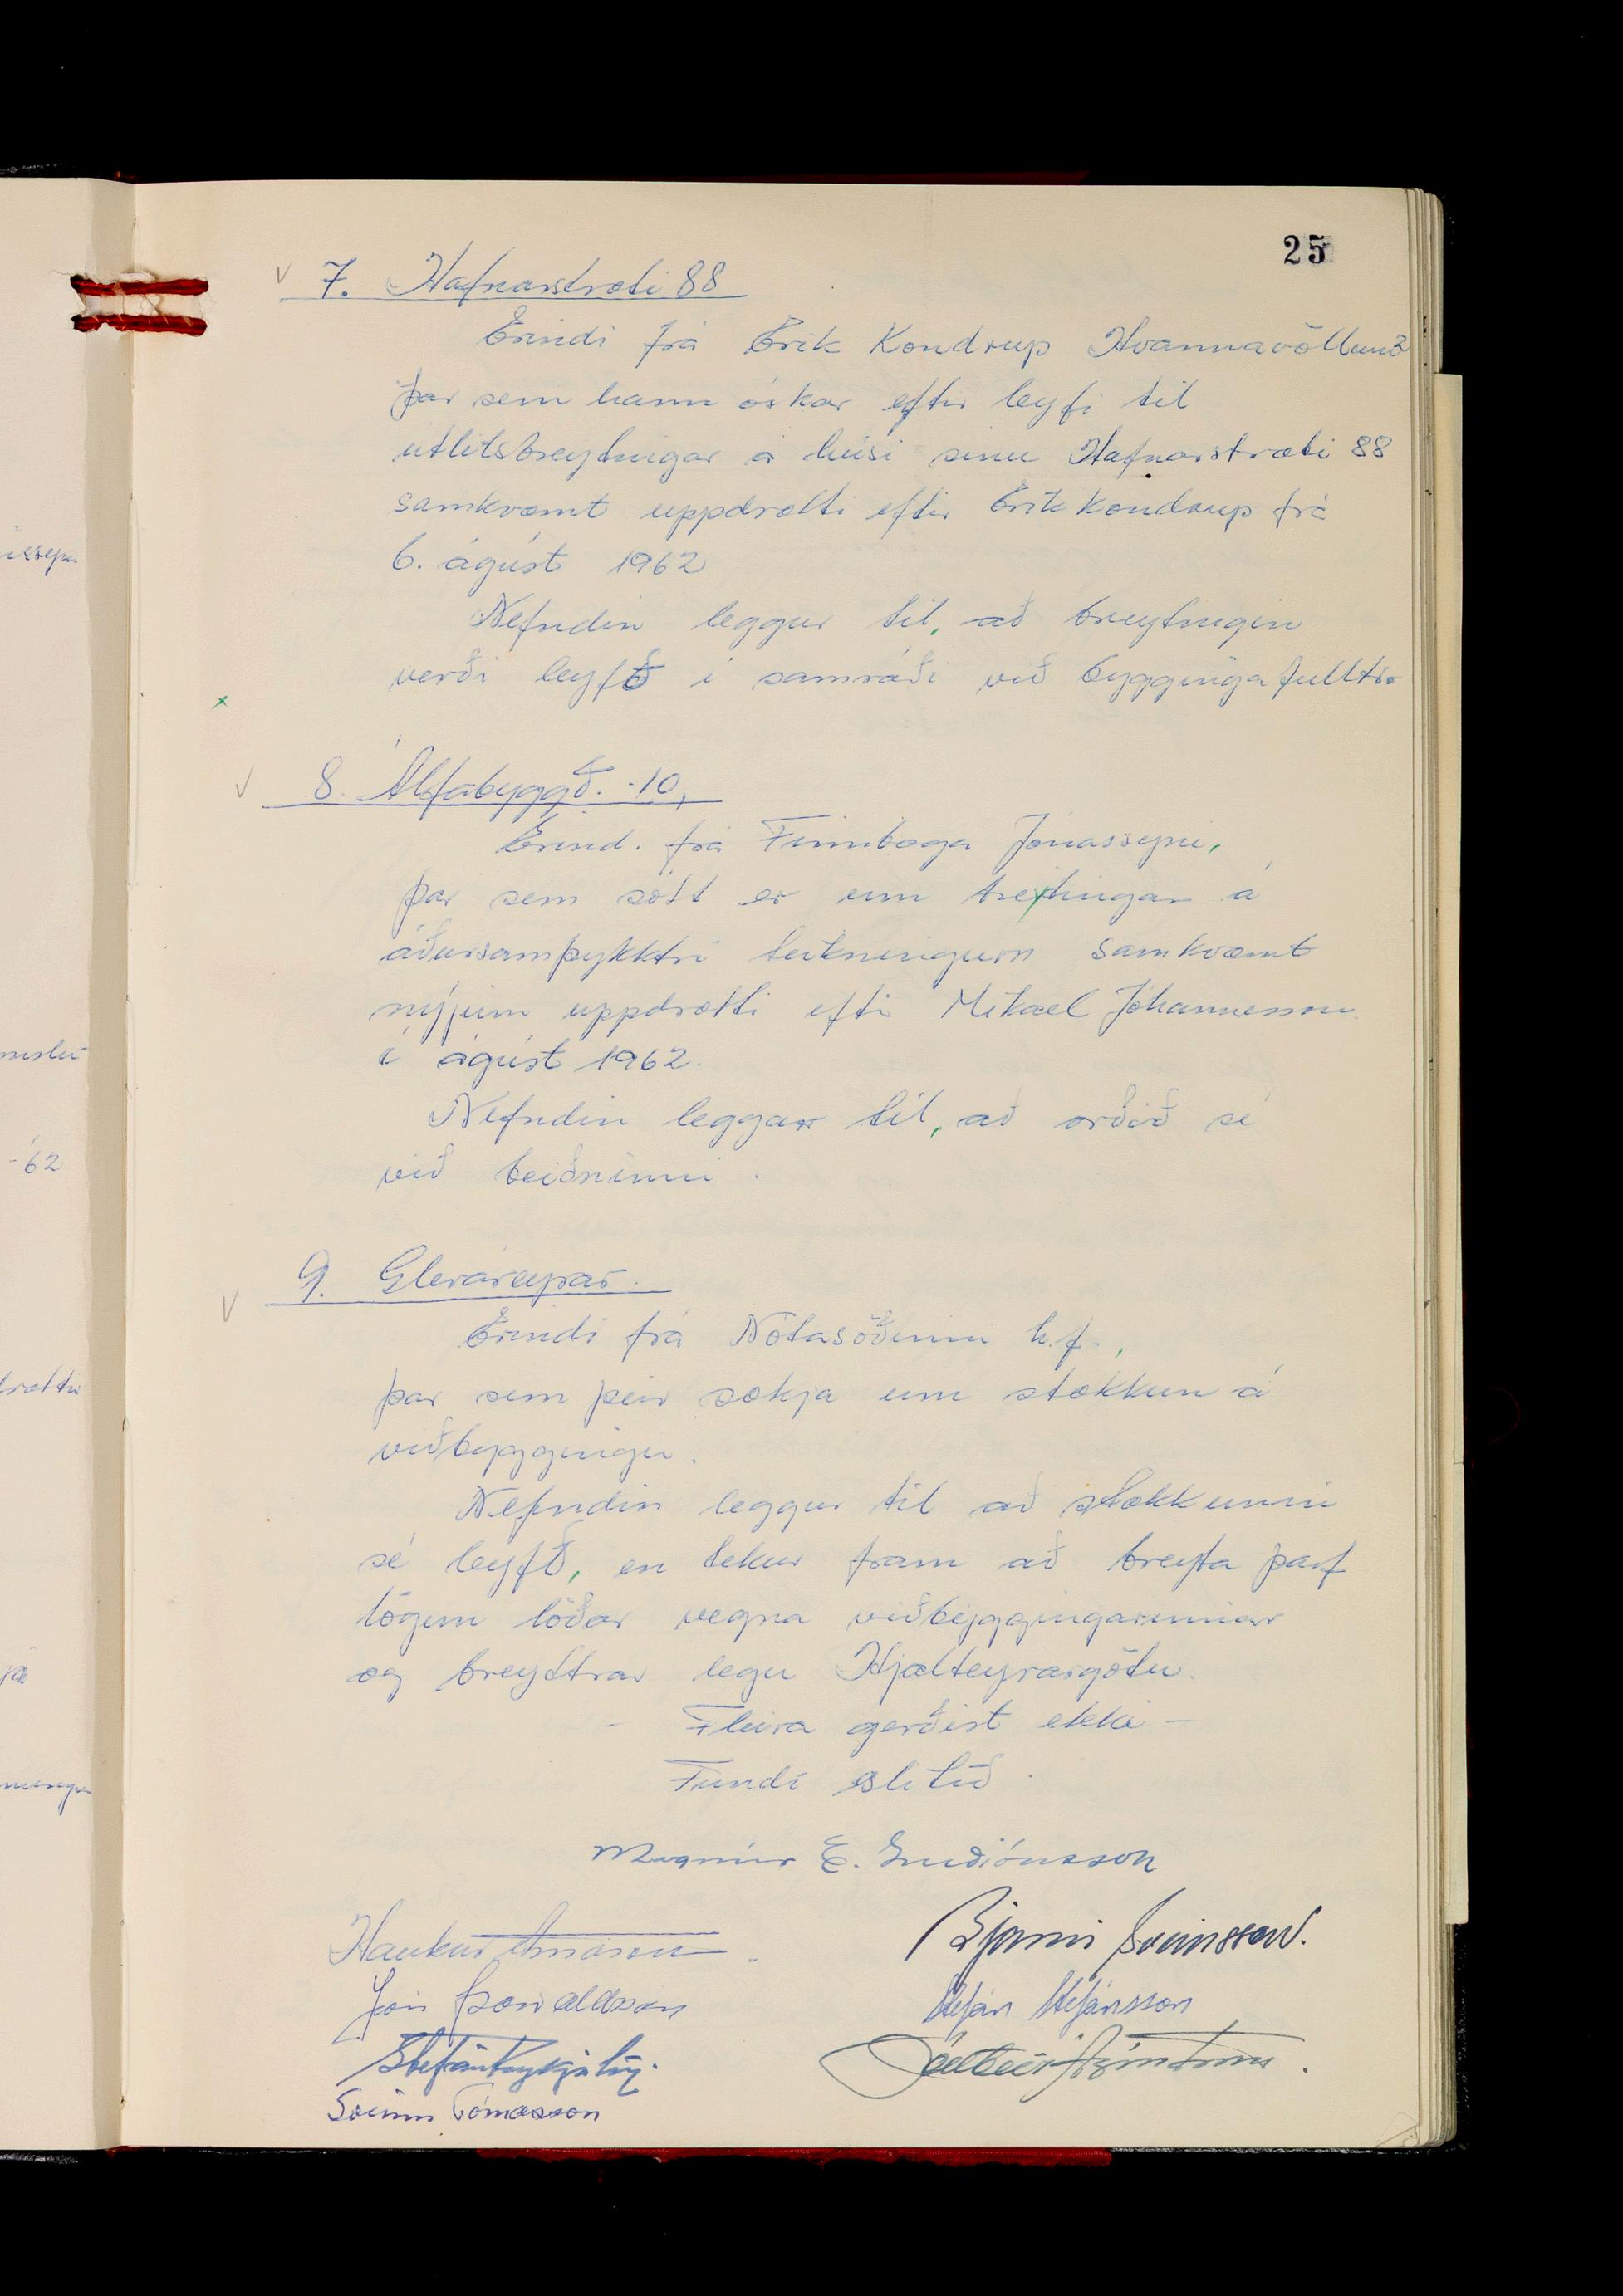 25
7. Hafnarstræti 88
Erindi frá Erik Kondrup Hvannavöllum 3
þar sem hann óskar eftir leyfi til
útlitsbreytingar á húsi sínu Hafnarstræti 88
samkvæmt uppdrætti eftir Erik Kondrup frá
6. ágúst 1962
Nefndin leggur til, að breytingin
verði leyfð í samráði við byggingafulltr.
8. Álfabyggð. 10,
Erind. frá Finnboga Jónassyni,
þar sem sótt er um breytingar á
áðursamþykktri teikningum samkvæmt
nýjum uppdrætti eftir Mikael Jóhannesson
í ágúst 1962.
Nefndin leggur til, að orðið sé
við beiðninni.
9. Gleráreyrar.
Erindi frá Nótastöðinni h.f.,
þar sem þeir sækja um stækkun á
viðbyggingu.
Nefndin leggur til að stækkunin
sé leyfð, en tekur fram að breyta þarf
lögun lóðar vegna viðbyggingarinnar
og breyttrar legu Hjalteyrargötu.
- Fleira gerðist ekki -
Fundi slitið.
Magnús E. Guðjónsson
Haukur Árnason
Bjarni Sveinsson.
Jón Þorvaldsson
Stefán Stefánsson
Stefán Reykjalín.
Sveinn Tómasson
62